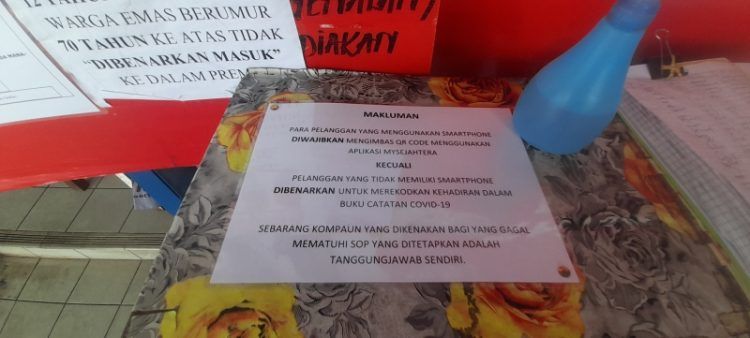 12 TAHUN
WARGA EMAS BERUMUR
70 TAHUN KE ATAS TIDAK
"DIBENARKAN MASUK"
KE DALAM
MAKLUMAN
PARA PELANGGAN YANG MENGGUNAKAN SMARTPHONE
DIWAJIBKAN MENGIMBAS QR CODE MENGGUNAKAN
APLIKASI MYSEJAHTERA
KECUALI
PELANGGAN YANG TIDAK MEMILIKI SMARTPHONE
DIBENARKAN UNTUK MEREKODKAN KEHADIRAN DALAM
BUKU CATATAN COVID-19
SEBARANG KOMPAUN YANG DIKENAKAN BAGI YANG GAGAL
MEMATUHI SOP YANG DITETAPKAN ADALAH
TANGGUNGJAWAB SENDIRI.